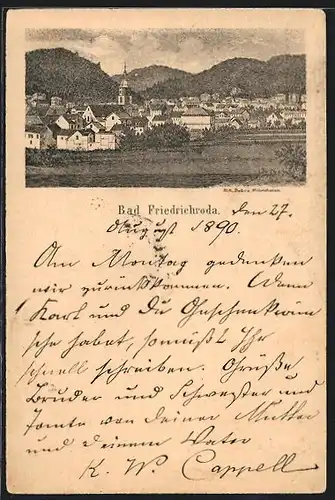 Bad Friedrichroda. den 27.
August 1890.
Am Montag gedenken
wir zurückkommen. Wenn
Karl und Du Geschenkwün
sche habet, so müßt Ihr
schnell schreiben. Grüße
Bruder und Schwester und
Tante von Deiner Mutter
und Deinem Vater
K. W. Cappell